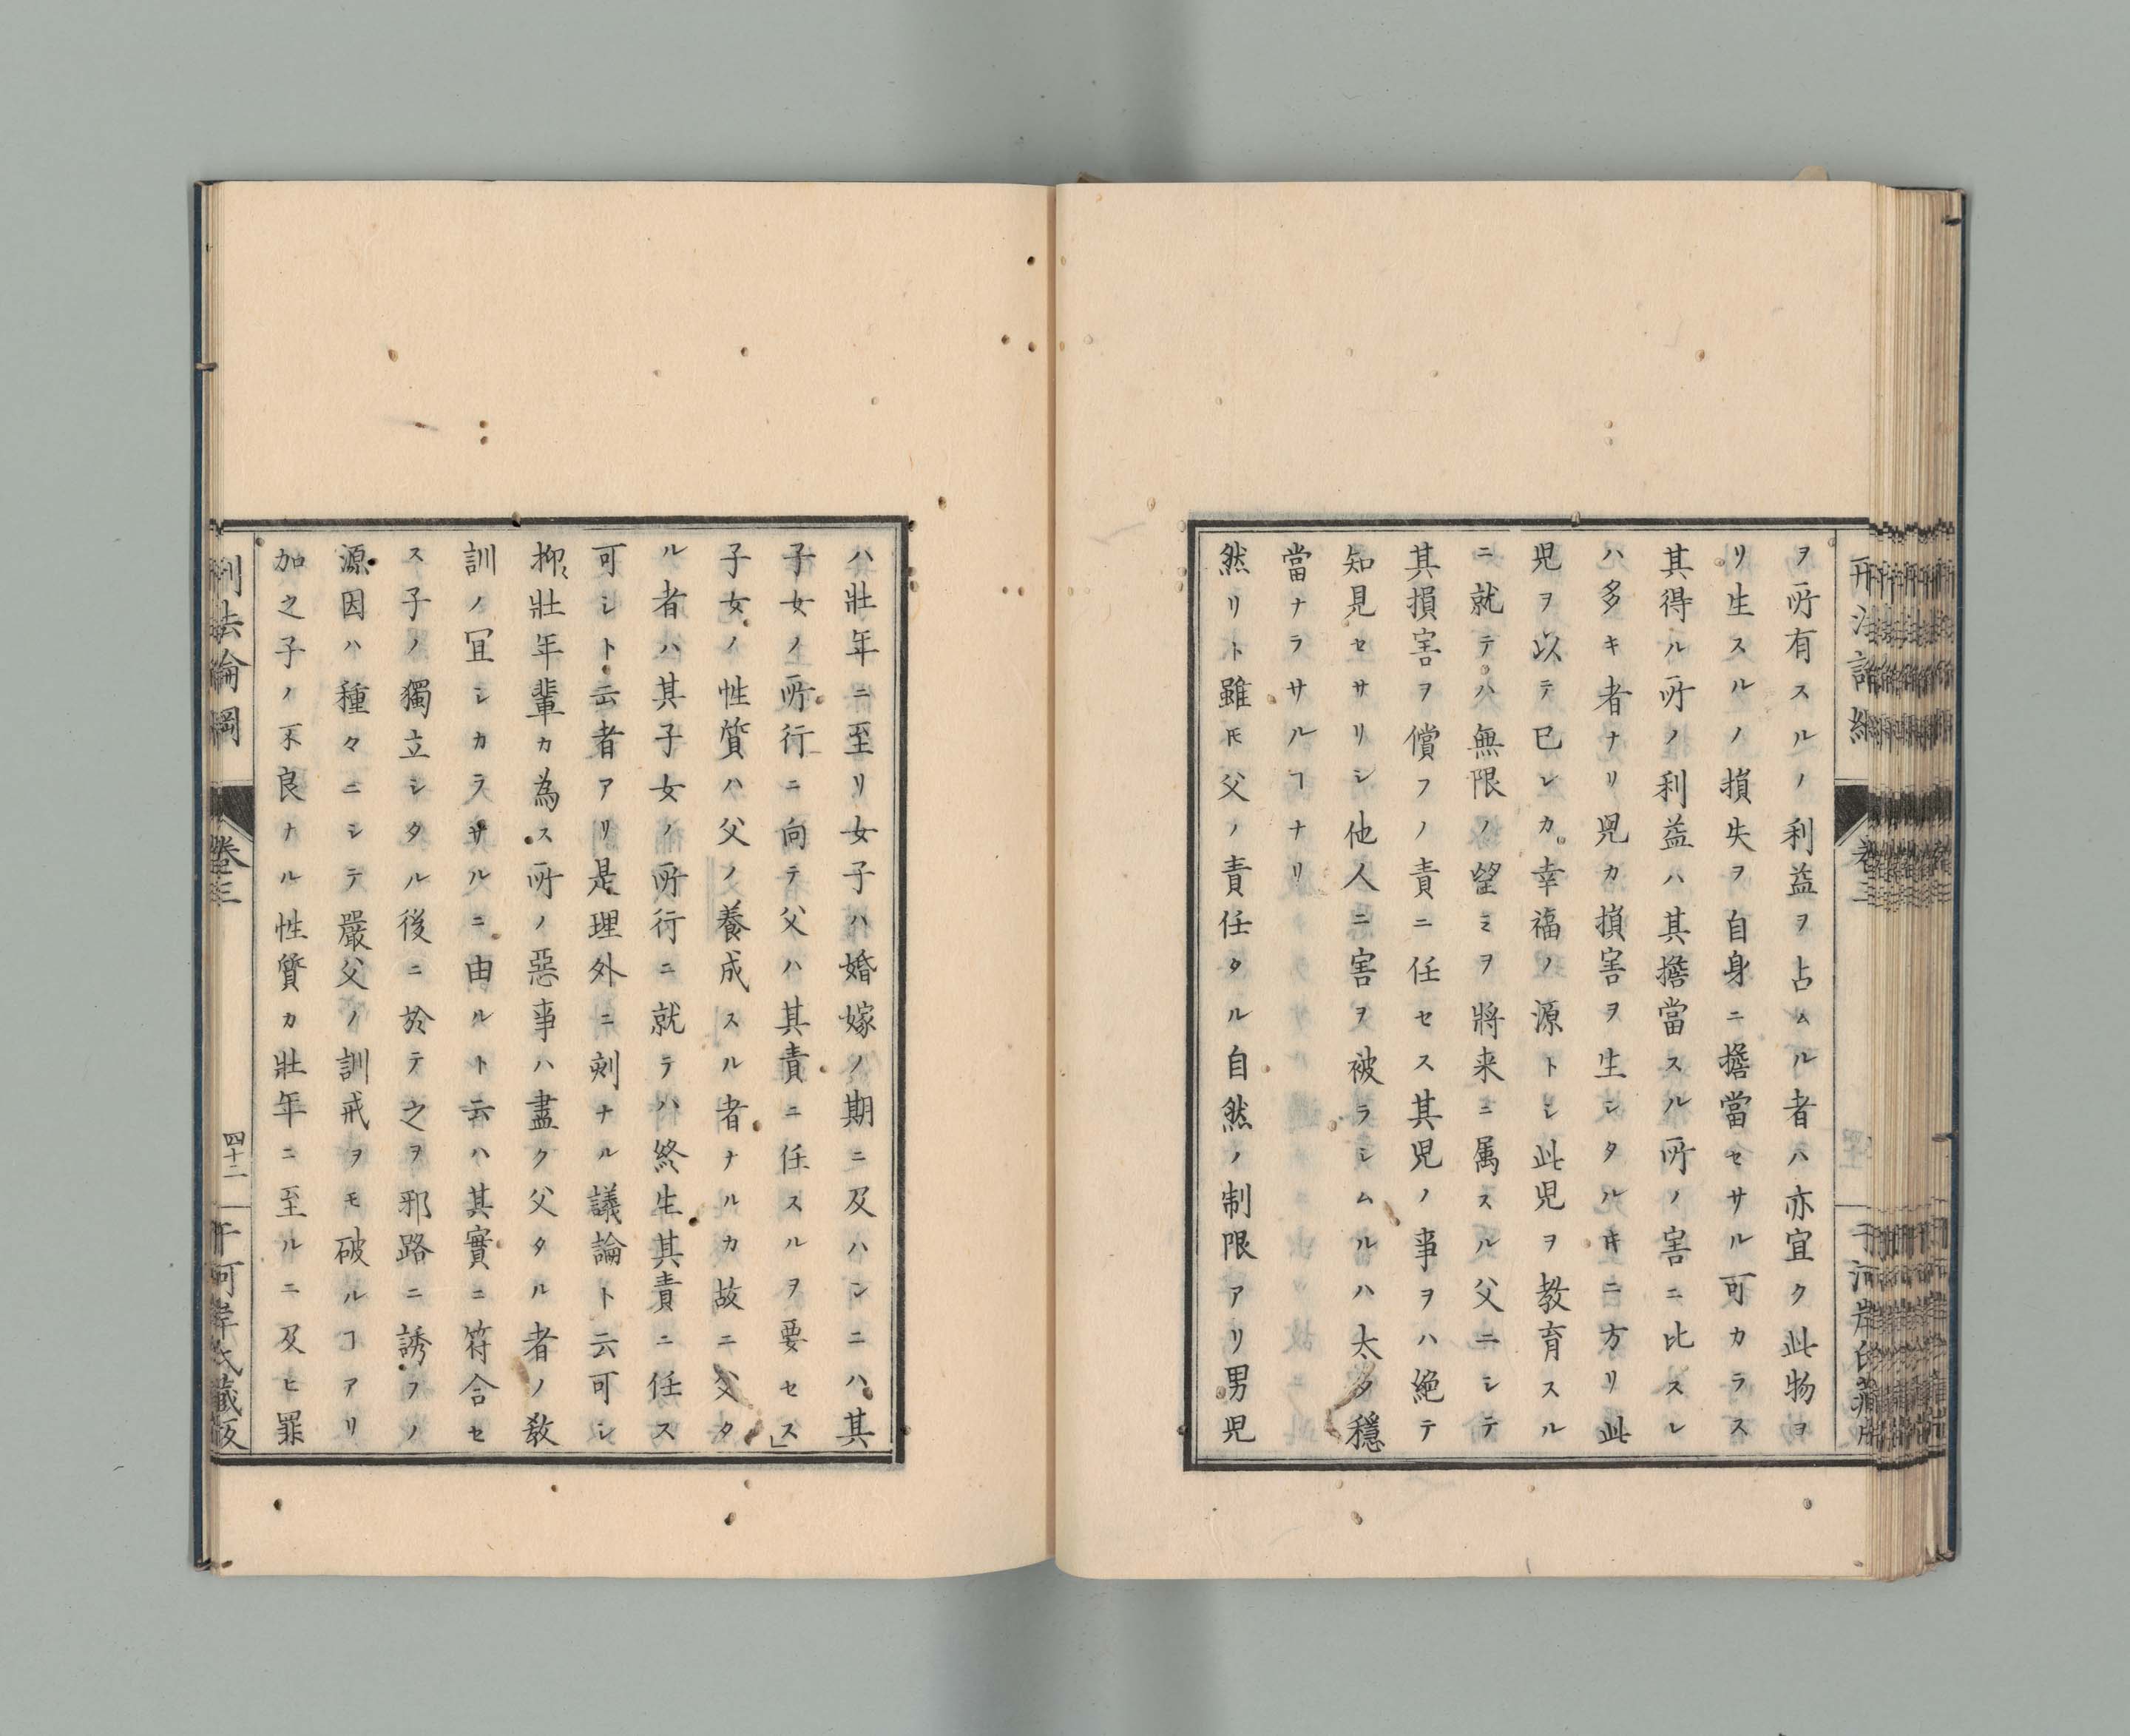 ヲ所有スルノ利益ヲ占ムル者ハ亦宜ク此物ヨ
リ生スルノ損失ヲ自身ニ擔當セサル可カラス
其得ル所ノ利益ハ其擔當スル所ノ害ニ比スレ
ハ多キ者ナリ児カ損害ヲ生シタルキニ方リ此
児ヲ以テ已レカ幸福ノ源トシ此児ヲ教育スル
ニ就テハ無限ノ望ミヲ將来ニ属スル父ニシテ
其損害ヲ償フノ責ニ任セス其児ノ事ヲハ絶テ
知見セサリシ他人ニ害ヲ被ラシムルハ太タ穩
當ナラサルヿナリ
然リト雖𪜈父ノ責任タル自然ノ制限アリ男児
ハ壯年ニ至リ女子ハ婚嫁ノ期ニ及ハンニハ其
子女ノ所行ニ向テ父ハ其責ニ任スルヲ要セス」
子女ノ性質ハ父ノ養成スル者ナルカ故ニ父タ
ル者ハ其子女ノ所行ニ就テハ終生其責ニ任ス
可シト云者アリ是理外ニ剣ナル議論ト云可シ
抑〻壯年輩カ為ス所ノ惡事ハ盡ク父タル者ノ教
訓ノ冝シカラサルニ由ルト云ハ其實ニ符合セ
ス子ノ獨立シタル後ニ於テ之ヲ邪路ニ誘フノ
源因ハ種々ニシテ嚴父ノ訓戒ヲモ破ルヿアリ
加之子ノ不良ナル性質カ壯年ニ至ルニ及ヒ罪
刑法論綱
卷三
四十二
河岸氏藏版